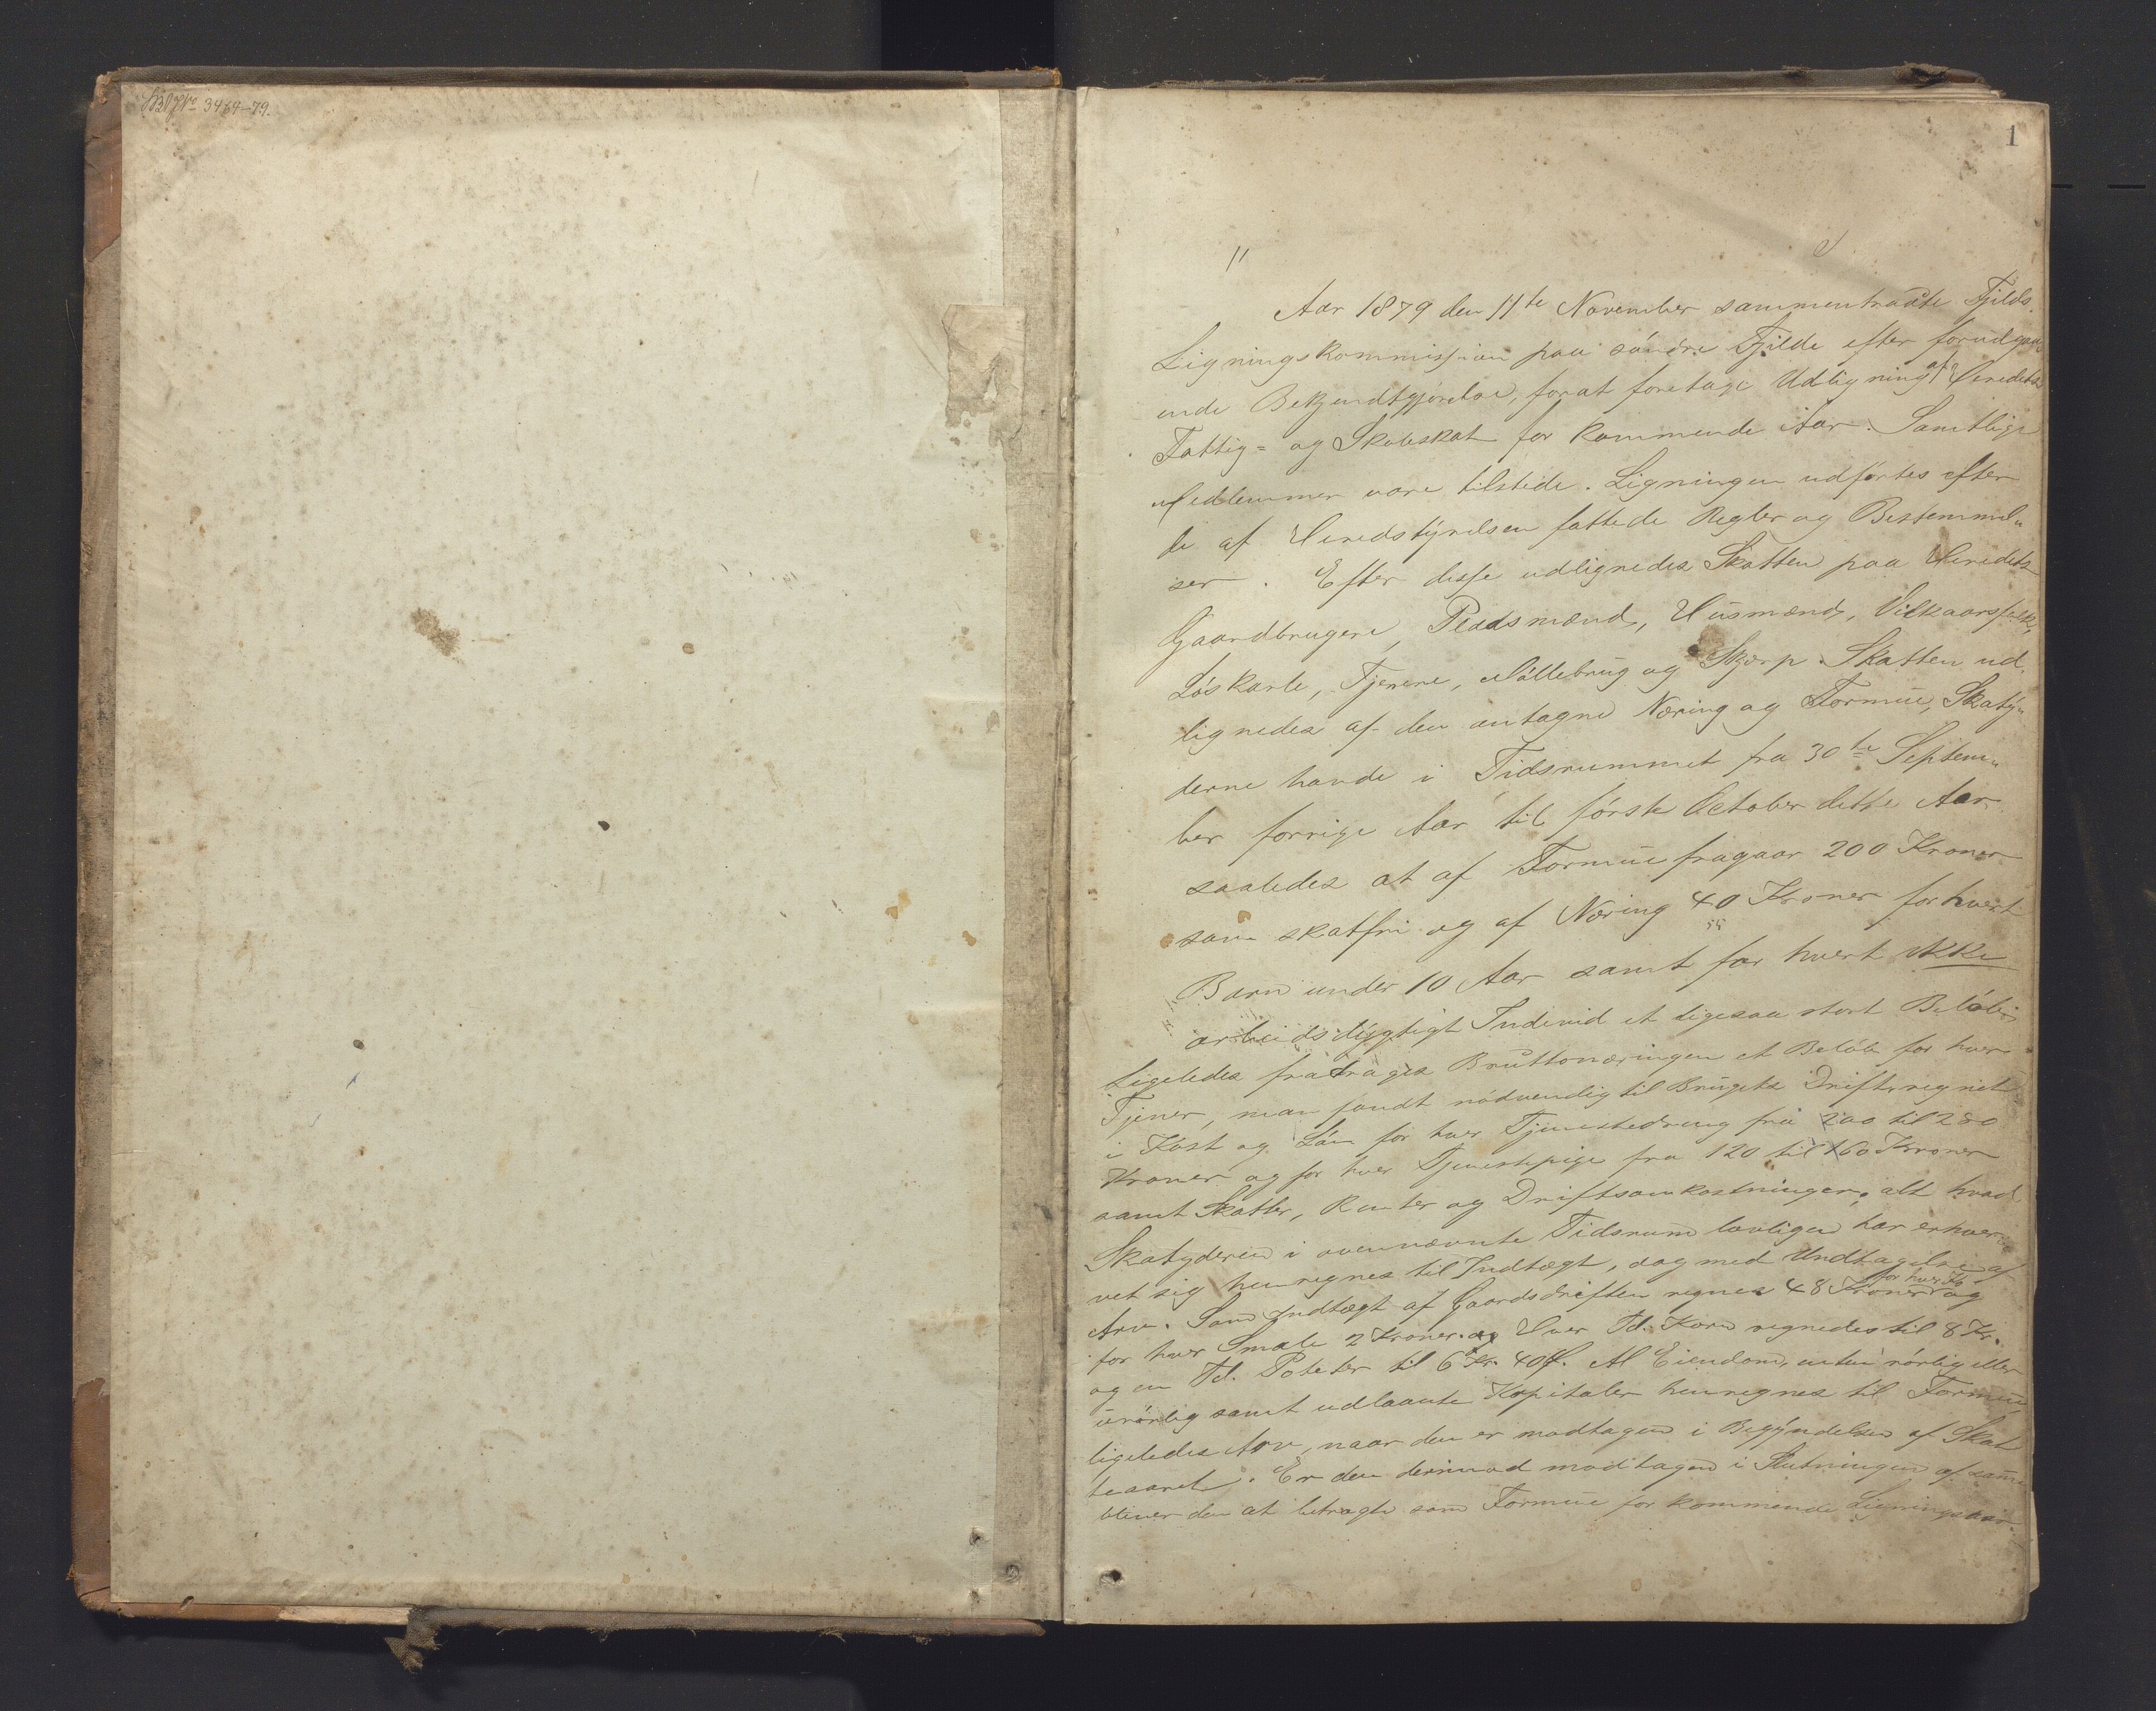 3464-79.
1
Aar 1879 den 11te November sammentraadte Fjilds
Ligningskommission paa söndre Fjilde efter forudgaa
ende Bekjendtgjörelse, forat foretage Udligning af Heredets
Fattig= og Skoleskat for kommende Aar. Samtlige
Medlemmer vare tilstede. Ligningen udförtes efter
de af Heredstyrelsen fattede Regler og Bestemmel„
ser. Efter disse udlignedes Skatten paa Heredets
Gaardbrugere, Pladsmænd, Husmænd, Vilkaarsfolk,
Löskarle, Tjenere, Möllebrug og Skjerp. Skatten ud„
lignedes af den antagne Næring og Formue, Skaty„
derne havde i Tidsrummet fra 30te Septem„
ber forrige Aar til förste October dette Aar
saaledes at af Formue fragaar 200 Kroner
som skatfri og af Næring 40 Kroner for hvert
Barn under 10 Aar samt for hvert ikke
arbeidsdygtigt Individ et ligesaa stort Belöb,
Ligeledes fradrages Bruttonæringen et Belöb for hver
Tjener, man fandt nödvendig til Brugets Drift, regnet
i Kost og Lön for hver Tjenestedreng fra 200 til 280
Kroner og for hver Tjenestepige fra 120 til 160 Kroner
samt Skatter, Renter og Driftsomkostninger, alt hvad
Skatyderen i ovennævnte Tidsrum lovligen har erhver„
vet sig henregnes til Indtægt, dog med Undtagelse af
Arv. Som Indtægt af Gaardsdriften regnes 48 Kroner for hver Ko og
for hver Smale 2 Kroner. Hver Td. Korn regnedes til 8 Kr.
og en Td. Poteter til 6 Kr. 40 Ø. Al Eiendom, enten rörlig eller
urörlig samt udlaante Kapitaler henregnes til Formue,
ligeledes Arv, naar den er modtagen i Begyndelsen af Skat
teaaret. Er den derimod modtagen i Slutningen af samme
bliver den at betragte som Formue for kommende Ligningsaar.